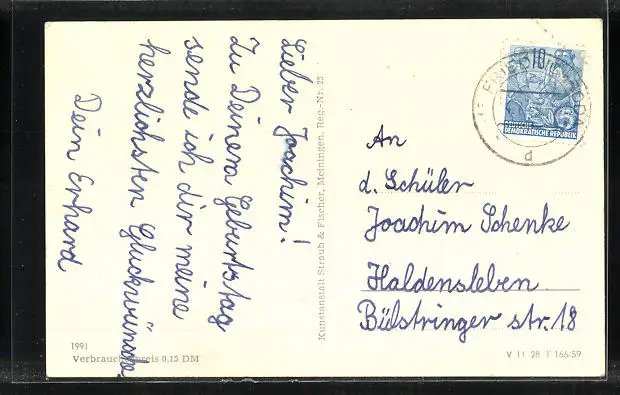 Lieber Joachim!
Zu Deinem Geburtstag
sende ich dir meine
herzlichsten Glückwünsche
Dein Erhard
Kunstanstalt Straub & Fischer, Meiningen, Reg.-Nr. 23
1991
Verbraucherpreis 0,15 DM
10
5
DEUTSCHE
DEMOKRATISCHE REPUBLIK
d
An
d. Schüler
Joachim Schenke
Haldensleben
Bülstringer str. 18
V 11 28 1 166/59